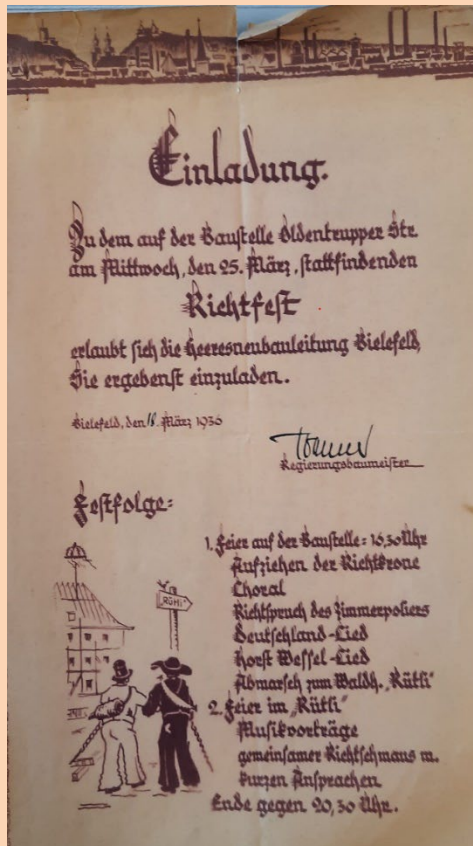 Einladung.
Zu dem auf der Baustelle Oldentrupper Str.
am Mittwoch, den 25. März, stattfindenden
Richtfest
erlaubt sich die Heeresneubauleitung Bielefeld,
Sie ergebenst einzuladen.
Bielefeld, den 18. März 1936
Regierungsbaumeister
Festfolge:
RÜTLI
1. Feier auf der Baustelle: 16,30 Uhr
Aufziehen der Richtkrone
Choral
Richtspruch des Zimmerpoliers
Deutschland-Lied
Horst Wessel-Lied
Abmarsch zum Waldh. „Rütli"
2. Feier im „Rütli"
Musikvorträge
gemeinsamer Richtschmaus m.
kurzen Ansprachen
Ende gegen 20,30 Uhr.